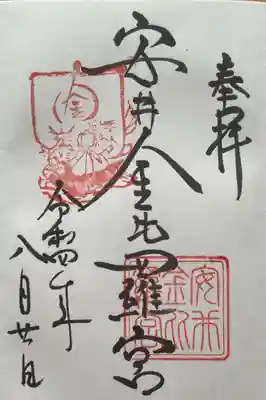 奉拝
安井金比羅宮
令和四年
八月廿日
金
安井金比羅宮